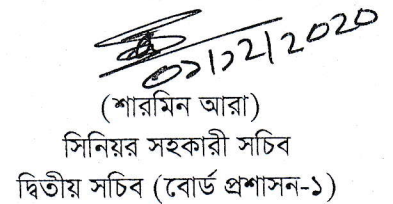 ০১/১২/২০২০
(শারমিন আরা)
সিনিয়র সহকারী সচিব
দ্বিতীয় সচিব (বোর্ড প্রশাসন-১)